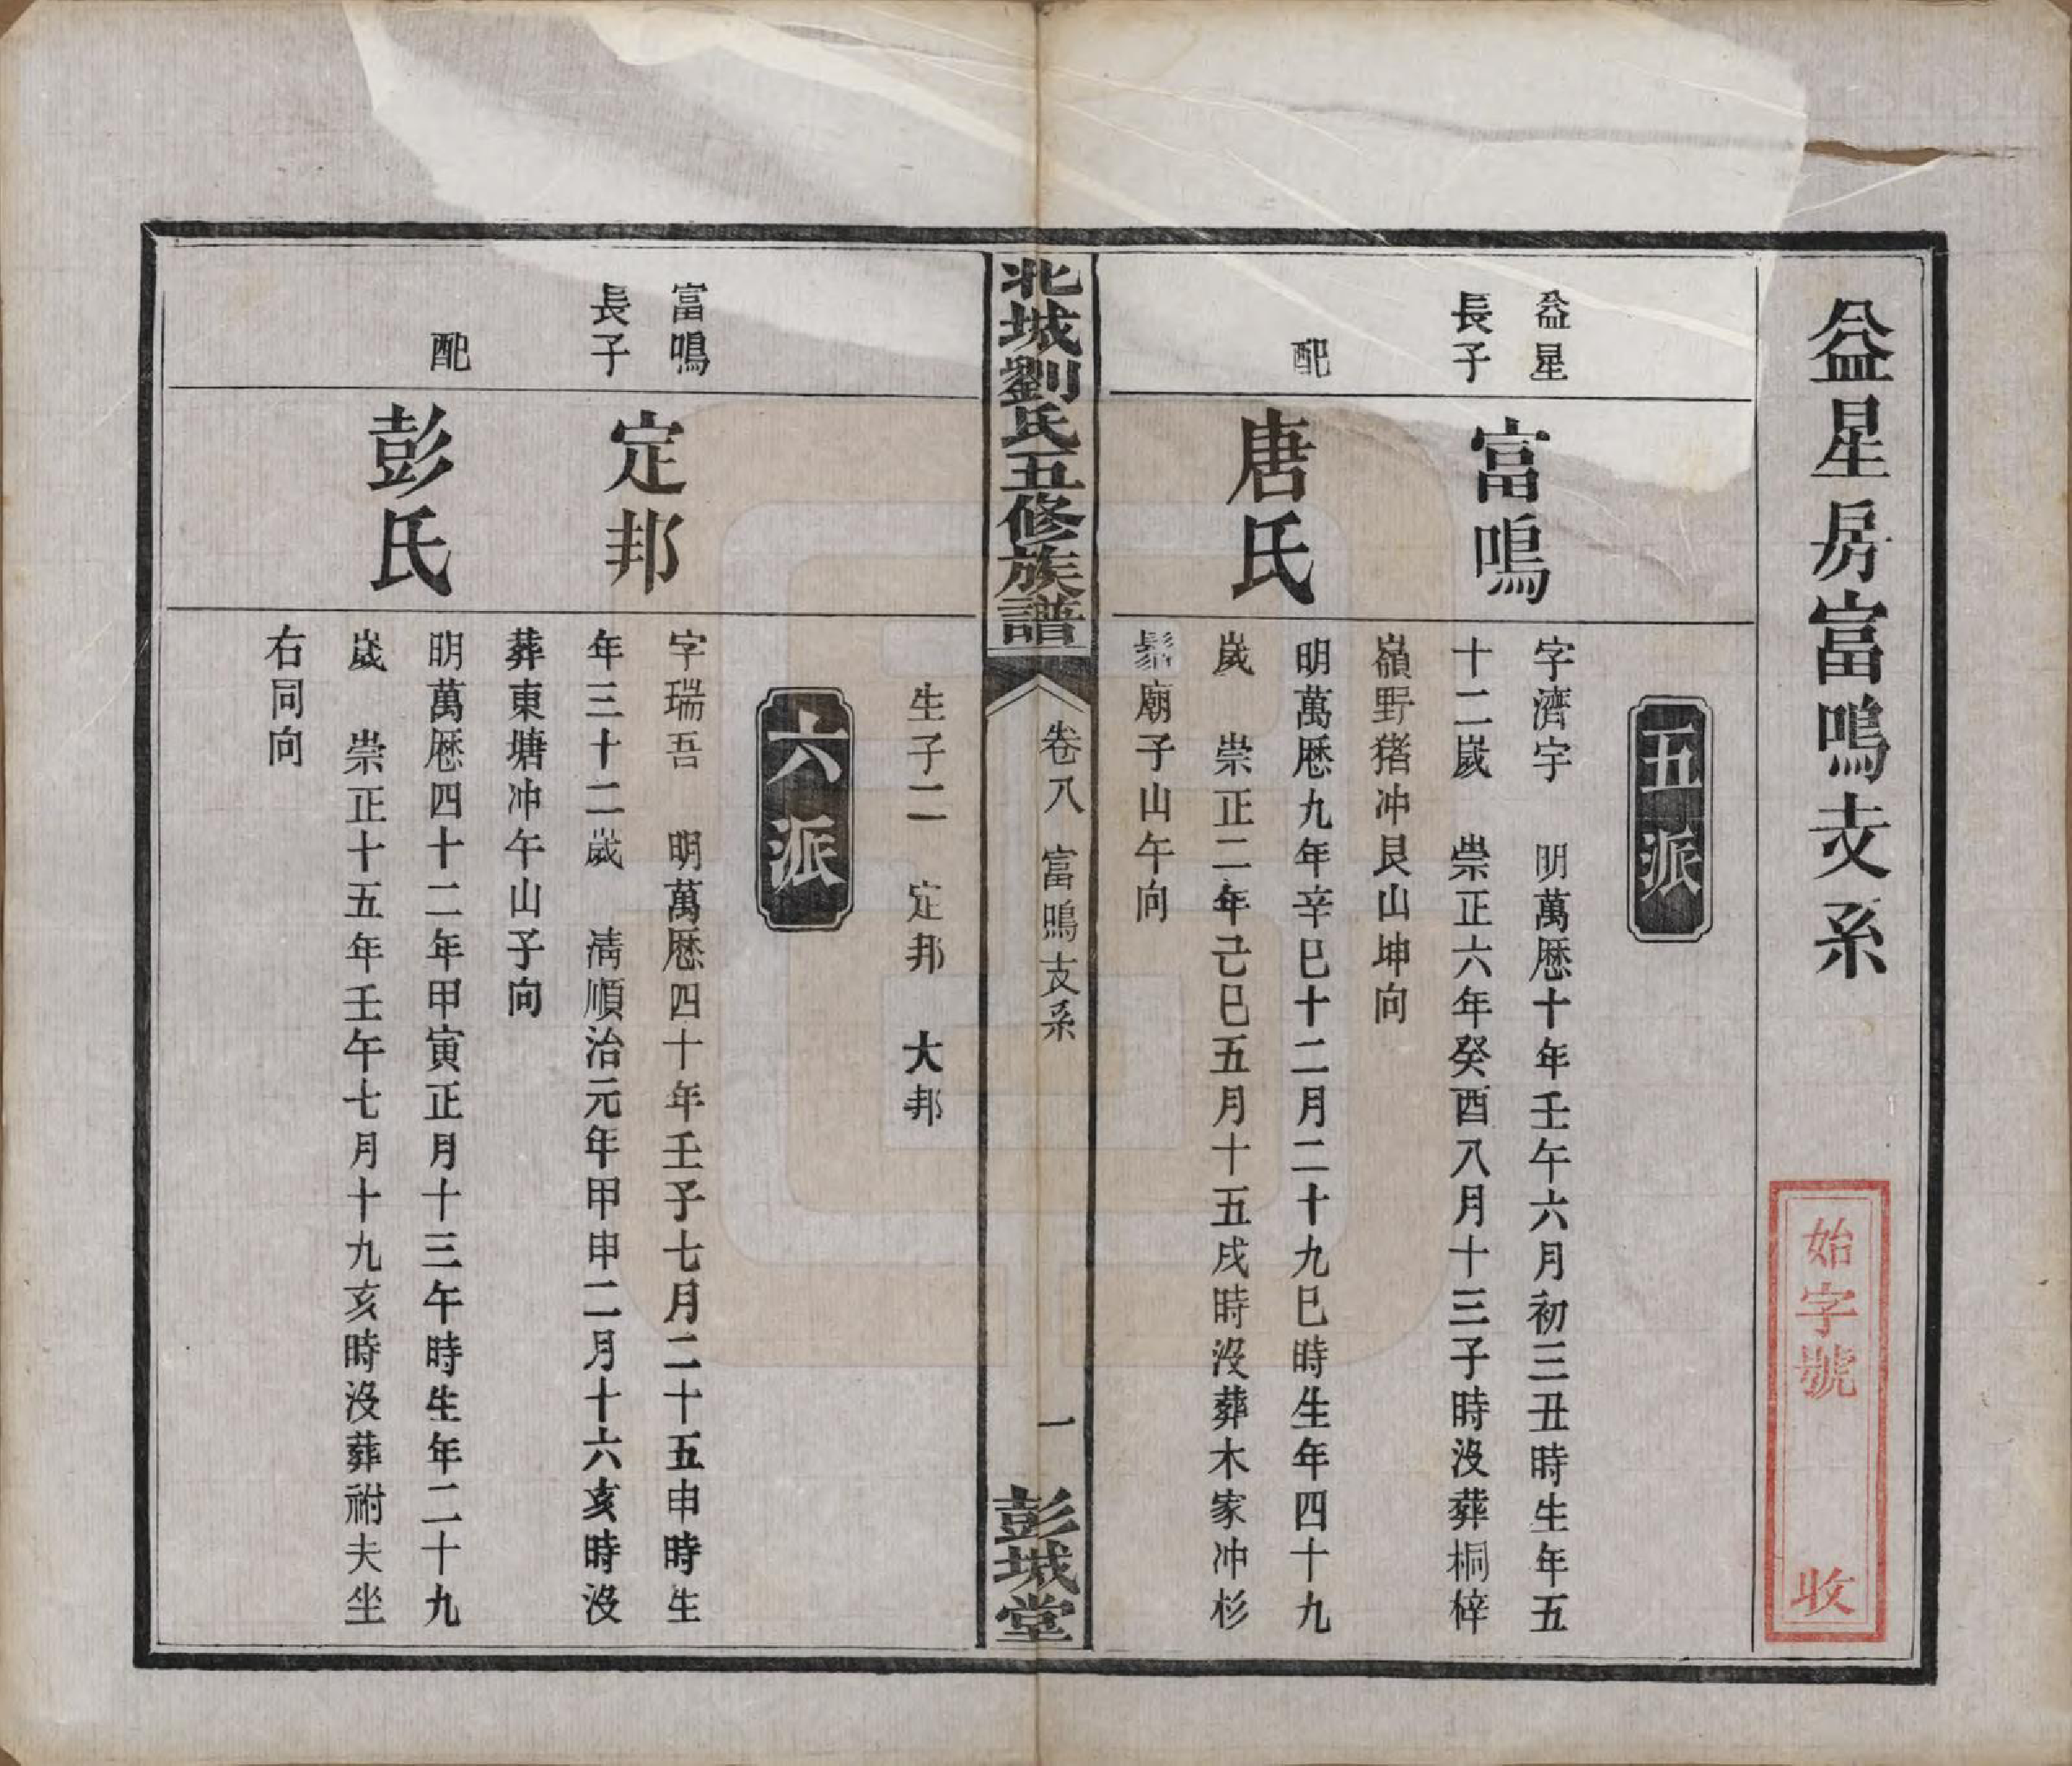 益星房富鳴支系
始字號　收
五派
益星
長子
富鳴
字濟宇　明萬厯十年壬午六月初三丑時生年五
十二歲　崇正六年癸酉八月十三子時没葬桐梓
嶺野猪冲艮山坤向
配
唐氏
明萬厯九年辛巳十二月二十九巳時生年四十九
歲　崇正二年己巳五月十五戌時没葬木家冲杉
廟子山午向
北城劉氏五修族譜
卷八　富鳴支系
一
彭城堂
生子二　定邦　大邦
六派
富鳴
長子
定邦
字瑞吾　明萬厯四十年壬子七月二十五申時生
年三十二歲　清順治元年甲申二月十六亥時没
葬東塘冲午山子向
配
彭氏
明萬厯四十二年甲寅正月十三午時生年二十九
歲　崇正十五年壬午七月十九亥時没葬祔夫坐
右同向